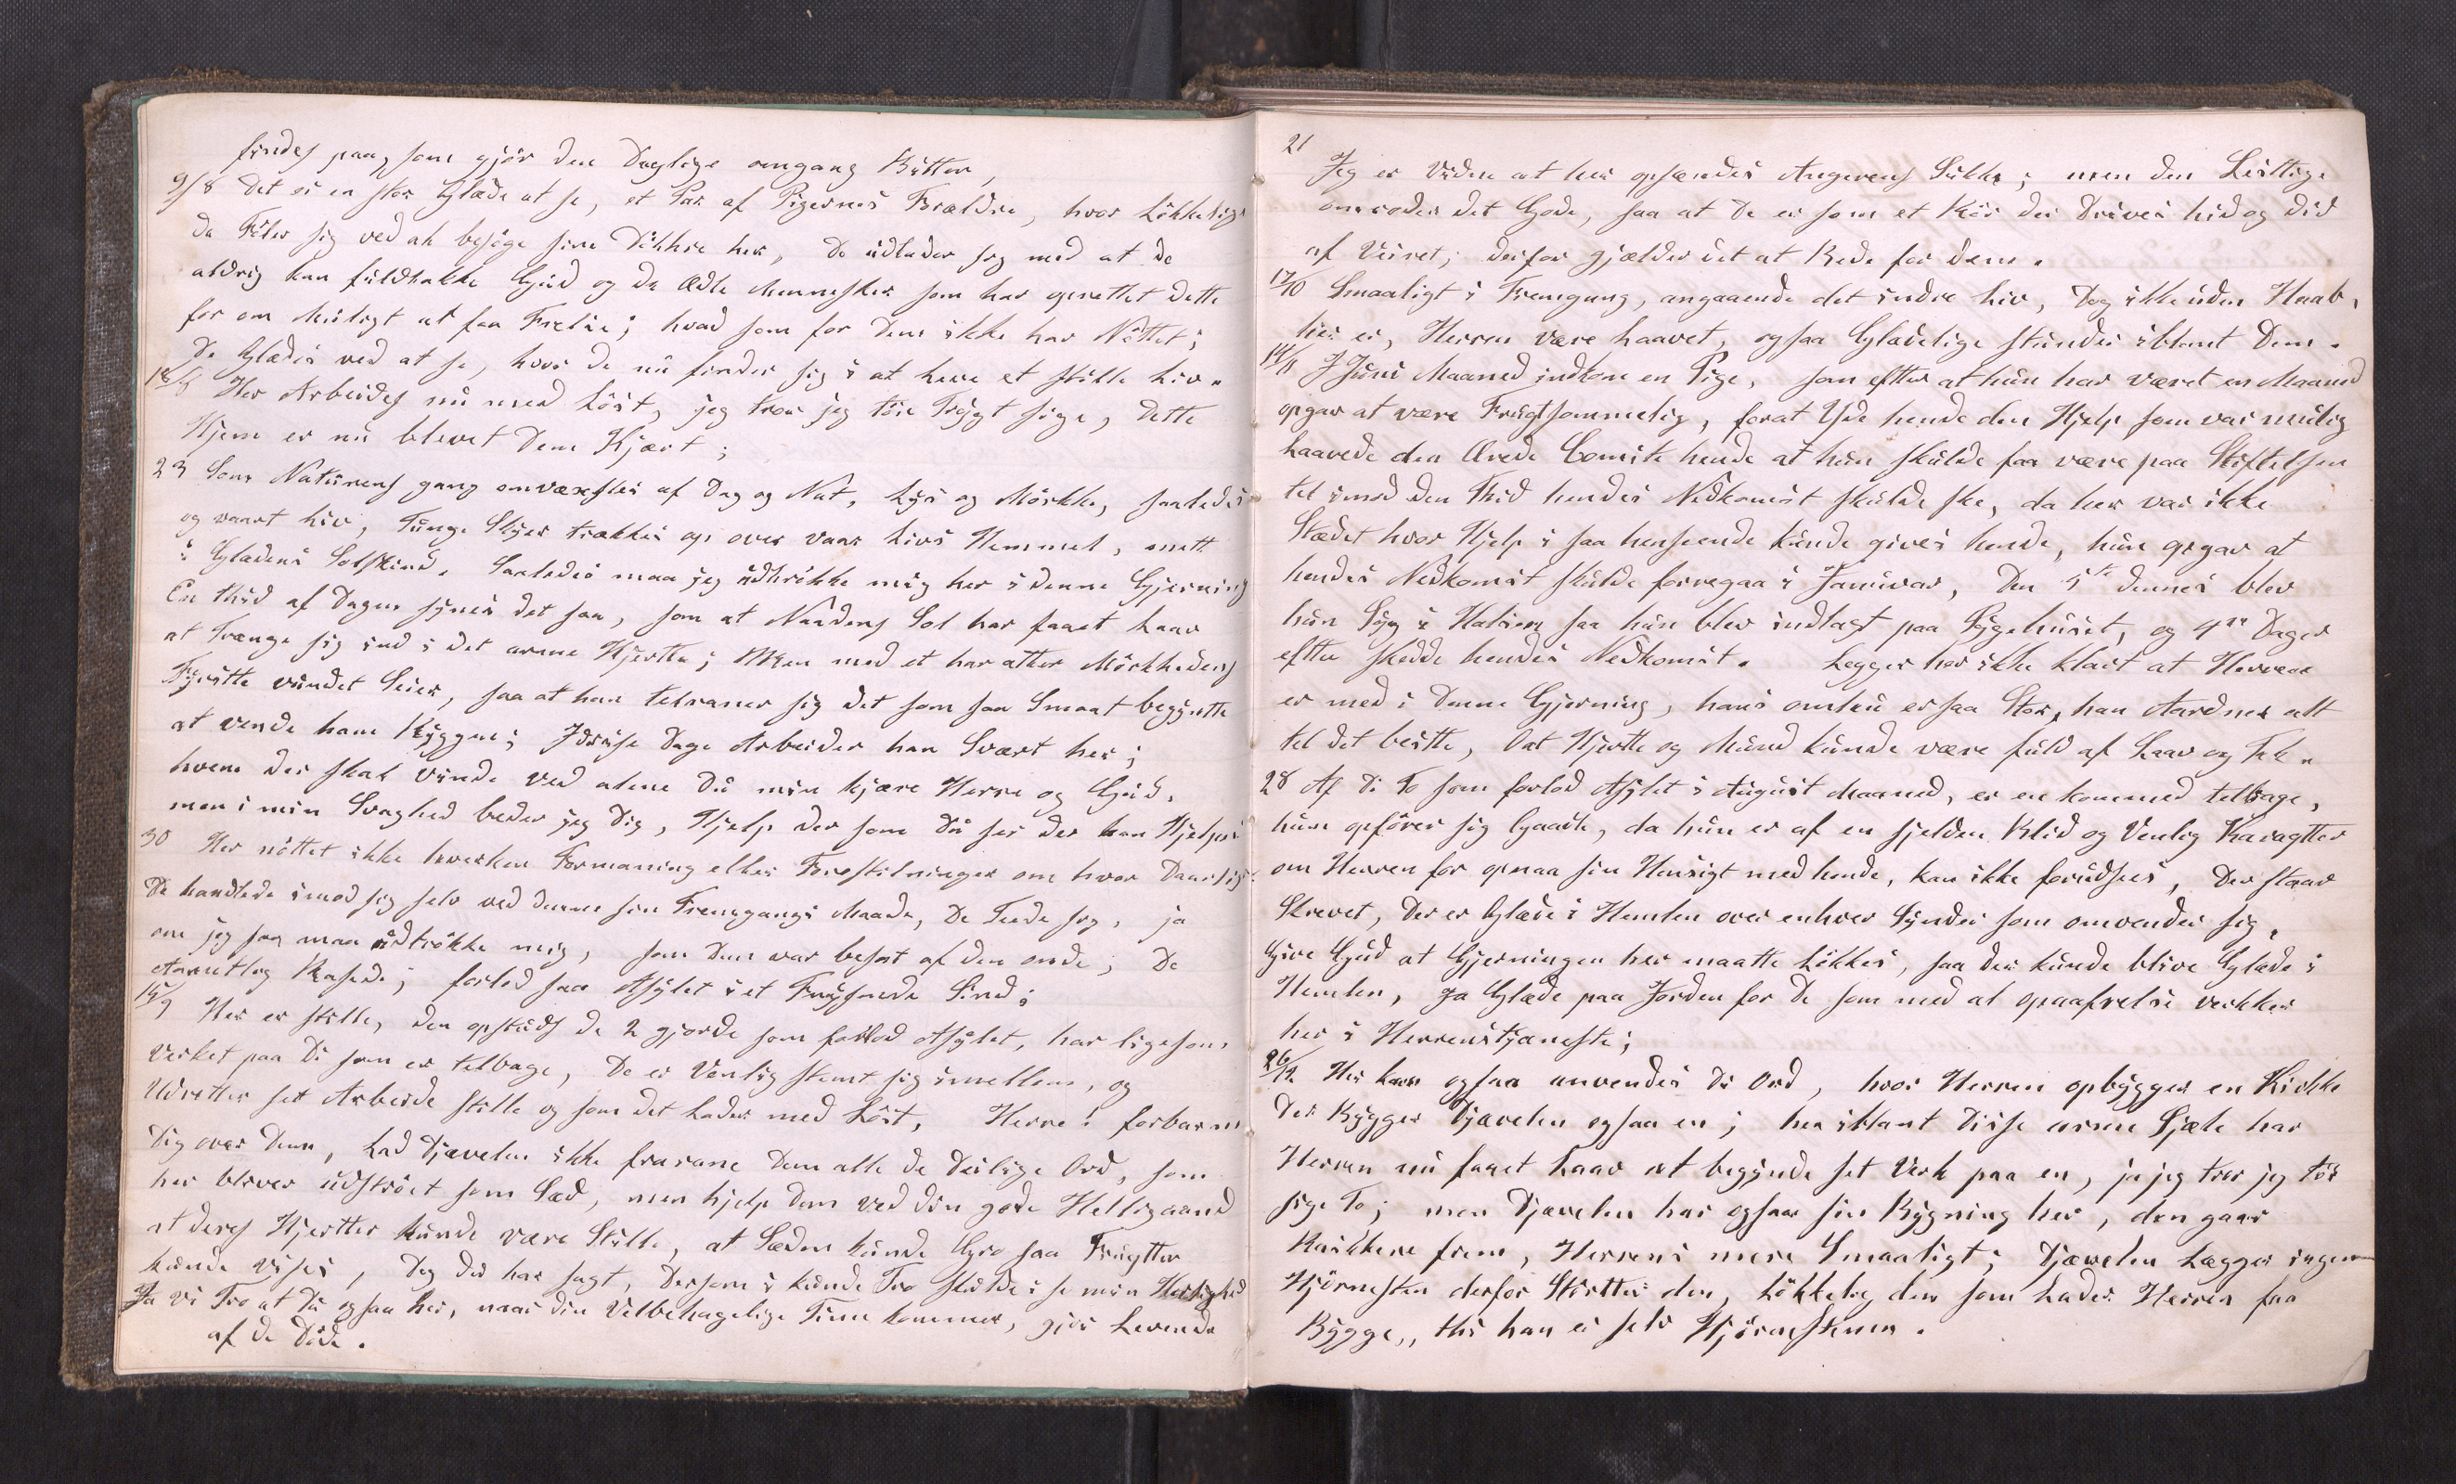 findes paa, som gjör den Daglige omgang Bitter,
9/8 Det er en stor Glæde at se, et Par af Pigernes Forældre, hvor Lökkelige
da Föler sig ved at besöge sine Döttre her, De udlader sig med at de
aldrig kan fuldtakke Gud og de Ædle Mennesker som har oprettet dette
for om Muligt at faa Frelse; hvad som for dem ikke har Nöttet;
De Glædes ved at se, hvor de nu finder sig i at leve et stille Liv.
18/8 Her Arbeides nu med Löst, jeg tror jeg töre Trygt sige, dette
Hjem er nu blevet dem Kjært;
23 Som Naturens gang omvæxsles af Dag og Nat, Lys og Mörkke, saaledes
og vaart Liv, Tunge Skyer trækkes op over vaar Livs Hemmel, mett
i Glædens Solskind. Saaledes maa jeg udtrökke mig her i denne Gjerning
En Thid af Dagen synes det saa, som at Naadens Sol har faaet Laav
at Trænge sig ind i det arme Hjertte; Men med et har atter Mörkhedens
Fyrstte vundet Seier, saa at han telraner sig det som saa Smaat begyntte
at vende ham Ryggen; I disse Dage Arbeider han Svært her;
hvem der skal vinde ved alene Du min kjære Herre og Gud,
men i min Svaghed beder jeg Dig, Hjelp der som Du ser der kan Hjelpes
30 Her nöttet ikke hverken Formaning eller Forestilninger om hvor Daarlig
De handlede imod sig selv ved denne sin Fremgangs Maade, De Teede sig, ja
om jeg saa maa udtrökke mig, som dem var besat af den onde; De
Aarentlig Rasede; forlod saa Asylet i et Frysende Sind;
15/9 Her er stille, den opstuds de 2 gjorde som forlod Asylet, har ligesom
Virket paa De som er telbage, De er Venlig stemt sig imellem, og
Udretter set Arbeide stille og som det lader med Löst, Herre! forbarm
Dig over Dem, Lad Djævelen ikke frarane Dem alle de Deilige Ord, som
her bliver udströet som Sæd, men hjelp dem ved din gode Helligaand
at deres Hjertter kunde være Stille, at Sæden kunde Gro saa Frugtter
kunde vises, Dog Du har sagt, Dersom i kunde Tro skulde i se min Herlighed
Ja vi Tro at Du ogsaa her, naar din Velbehagelige Time kommer, gjör Levende
af de Döde.
21
Jeg er Viden at her opsændes Angerens Sukke; men den Listtige
omroder det Gode, saa at De er som et Rör der Drives hid og did
af Veiret; derfor gjælder det at Bede for dem.
17/10 Smaaligt i Fremgang, angaaende det indre Liv, Dog ikke uden Haab,
her er, Herren være Laavet, ogsaa Glædelige stunder iblant Dem.
14/11 I Juni Maaned indkom en Pige, som efter at hun har været en Maaned
opgav at være Frugtsommelig, forat Yde hende den Hjelp som var mulig
Laavede den Ærede Comite hende at hun skulde faa være paa Stiftelsen
tel imod den Thid hendes Nedkomst skulde ske, da her var ikke
Stædet hvor Hjelp i saa henseende kunde gives hende, hun opgav at
hendes Nedkomst skulde forregaa i Januvar, Den 5te dennes blev
hun Syg i Halsen saa hun blev indlagt paa Sygehuset, og 4re Dager
efter skedde hendes Nedkomst. Legger her ikke klart at Herren
er med i denne Gjerning, hans omhu er saa Stor, han Aardner alt
tel det bestte, O at Hjertte og Mund kunde være fuld af Laav og Tak.
28 Af De To som forlod Asylet i August Maaned, er en kommed telbage,
hun opförer sig Gaadt, da hun er af en sjelden Blid og Venlig Karagtter
om Herren for opnaa sin Hensigt med hende, kan ikke forudsees, Der staar
Skrevet, Der er Glæde i Hemlen over enhver Synder som omvender sig,
Give Gud at Gjerningen her maatte Lökkes, saa der kunde blive Glæde i
Hemlen, ja Glæde paa Jorden for De som med al opaafrelse verkker
her i Herrenstjæneste;
26/12 Her kan ogsaa anvendes De Ord, hvor Herren opbygger en Kirkke
Der Bygger Djævelen ogsaa en; her iblant Disse arme Sjæle har
Herren nu faaet Laav at begynde set Verk paa en, ja jeg tror jeg tör
sige To; men Djævelen har ogsaa sin Bygning her, den gaar
Raskkere frem, Herrens mere Smaaligt; Djævelen Lægger ingen
Hjörnesten derfor Störtter den, Lökkelig den som lader Herren faa
Bygge,, thi han er selv Hjörnestenen.